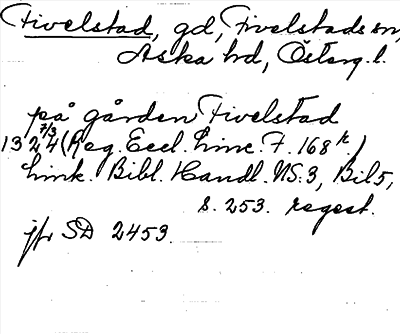 Fivelstad, gd, Fivelstads sn,
Aska hd, Österg. l.
på gården Fivelstad
1324 7/3 (Reg. Eccl. Linc. f. 168 r.)
Link. Bibl. Handl. NS: 3, Bil 5,
s. 253. regest.
jfr SD 2453.